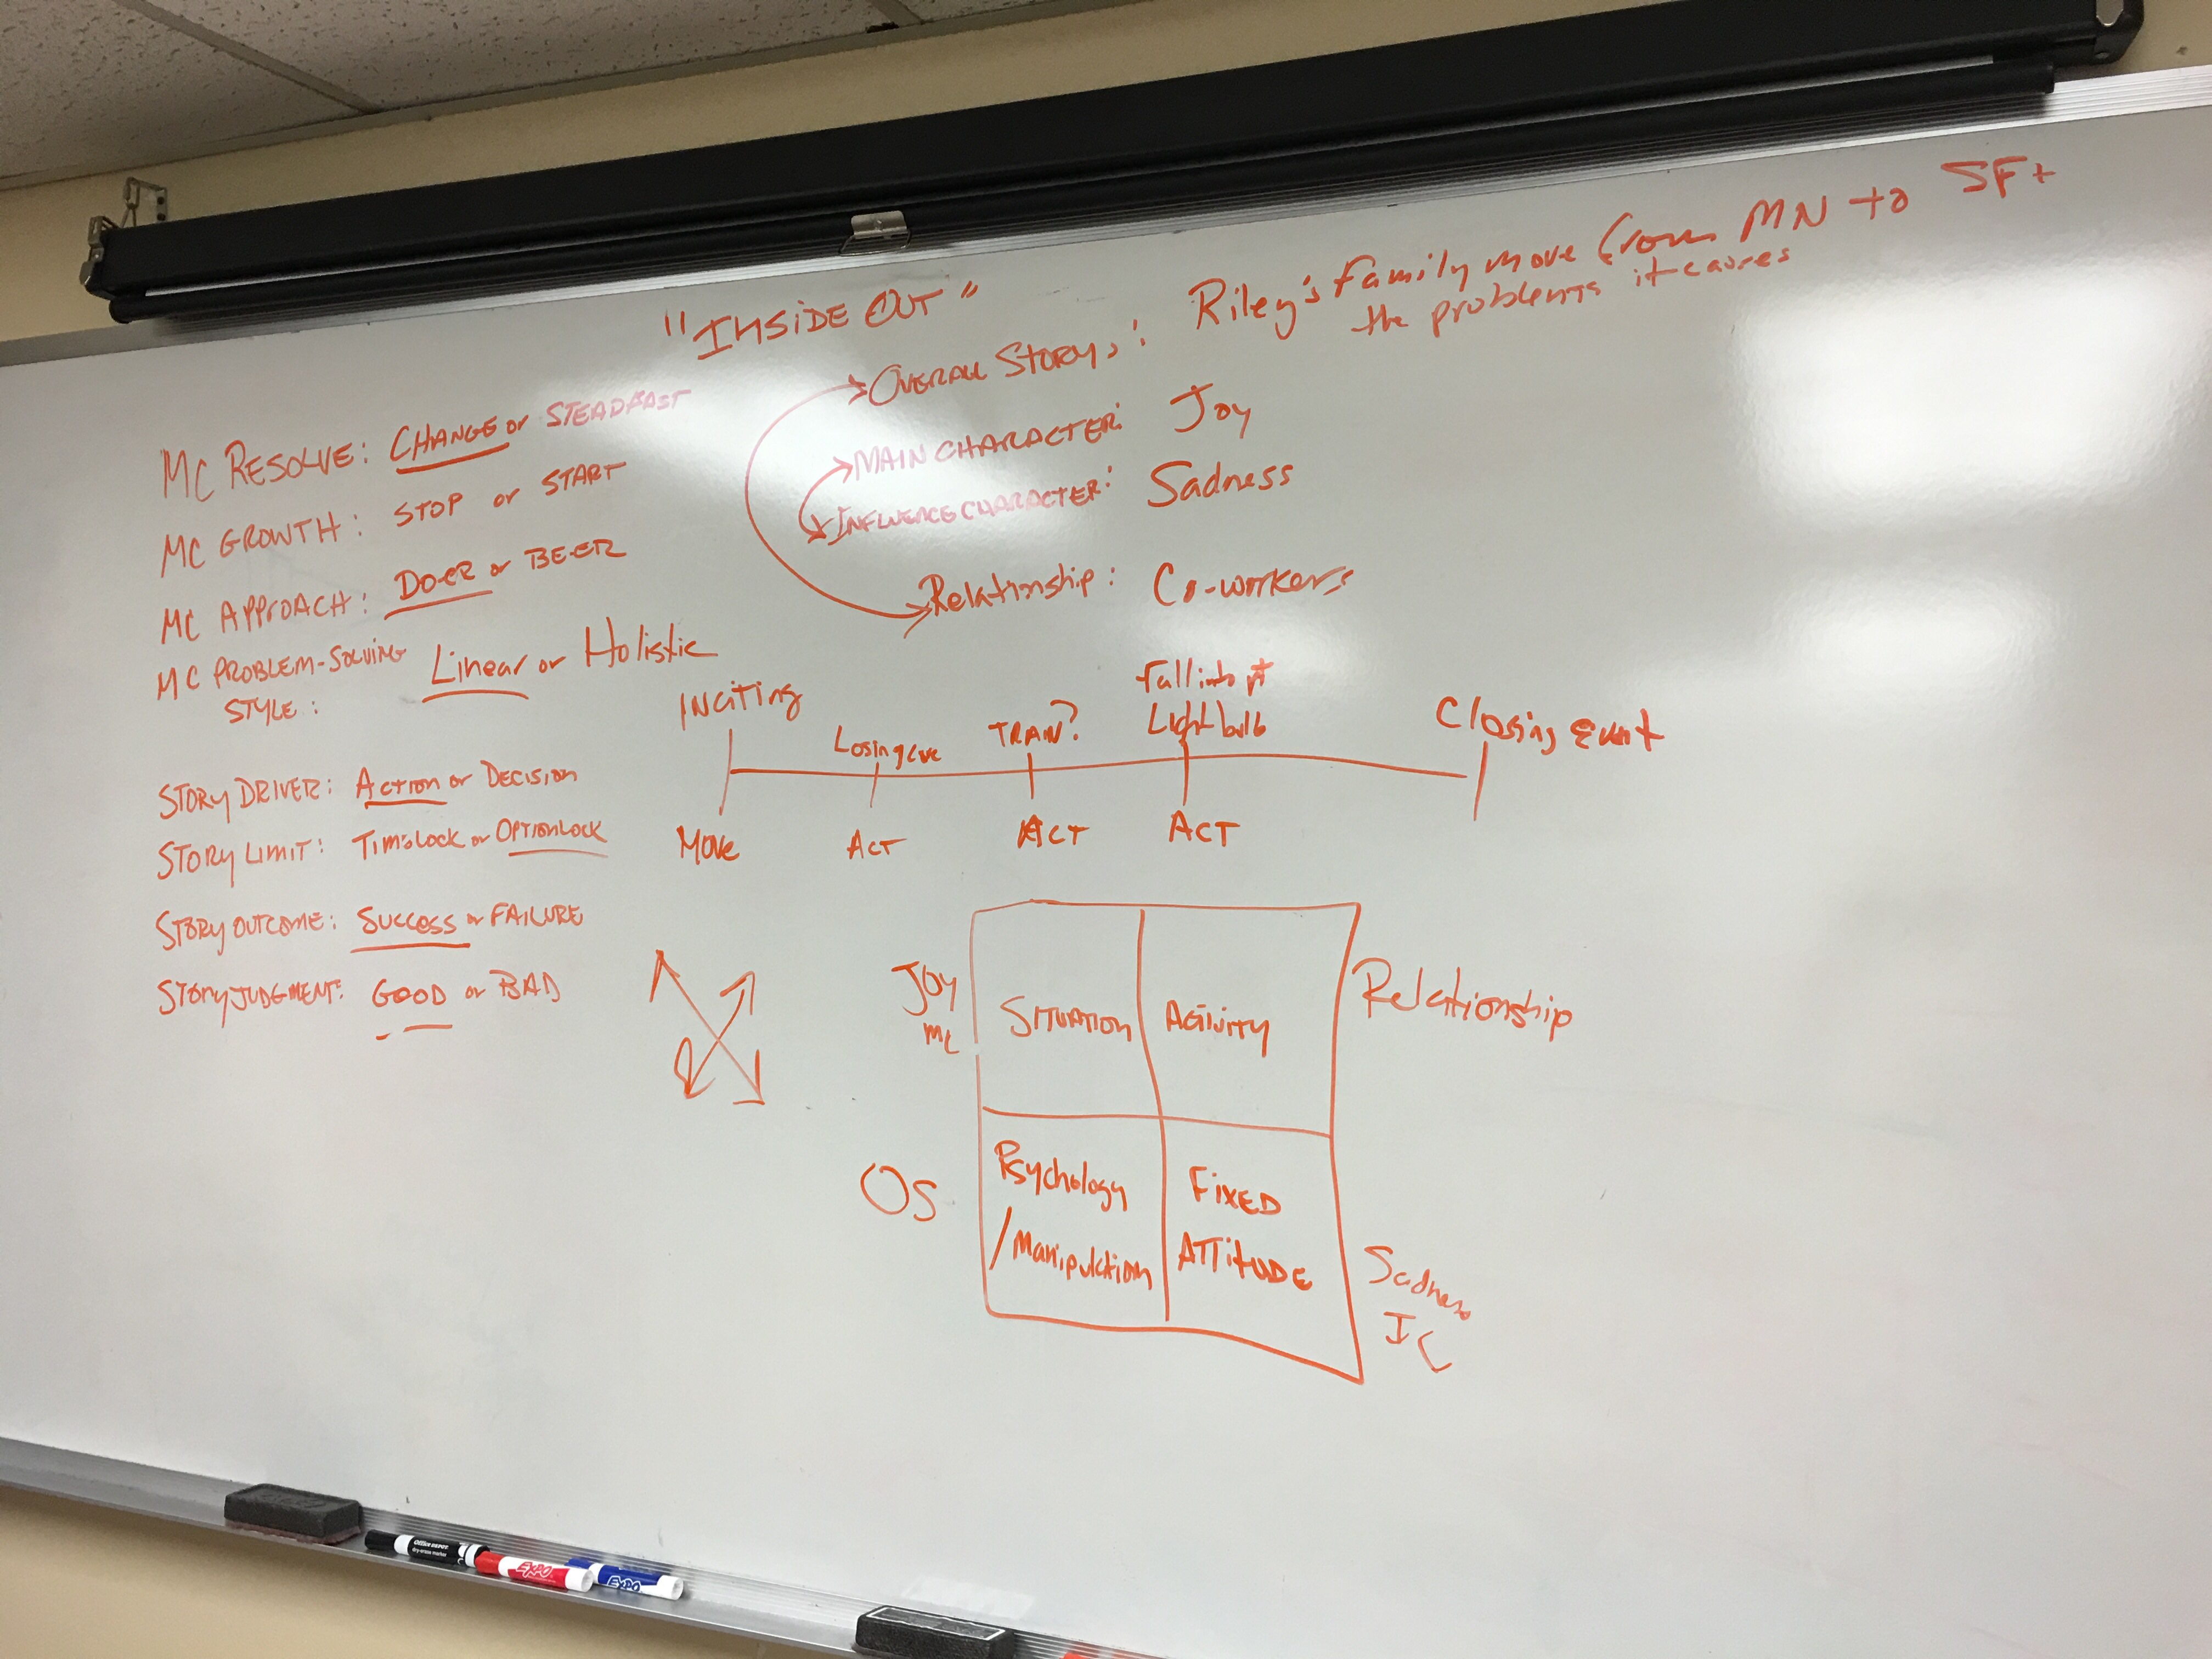 "INSIDE OUT"
OVERALL STORY: Riley's Family move from MN to SF +
the problems it causes
MAIN CHARACTER: Joy
INFLUENCE CHARACTER: Sadness
Relationship: Co-workers
MC RESOLVE: CHANGE or STEADFAST
MC GROWTH: STOP or START
MC APPROACH: DO-ER or BE-ER
MC PROBLEM-SOLVING
STYLE: Linear or Holistic
STORY DRIVER: ACTION or DECISION
STORY LIMIT: TIMELOCK or OPTIONLOCK
STORY OUTCOME: SUCCESS or FAILURE
STORY JUDGMENT: GOOD or BAD
INCITING
Losing
TRAIN?
Fall into pit
Lightbulb
Closing Event
MOVE
ACT
ACT
ACT
JOY
MC
SITUATION
ACTIVITY
Relationship
OS
Psychology
/Manipulation
FIXED
ATTITUDE
Sadness
IC
OFFICE DEPOT
dry-erase marker
EXPO
EXPO